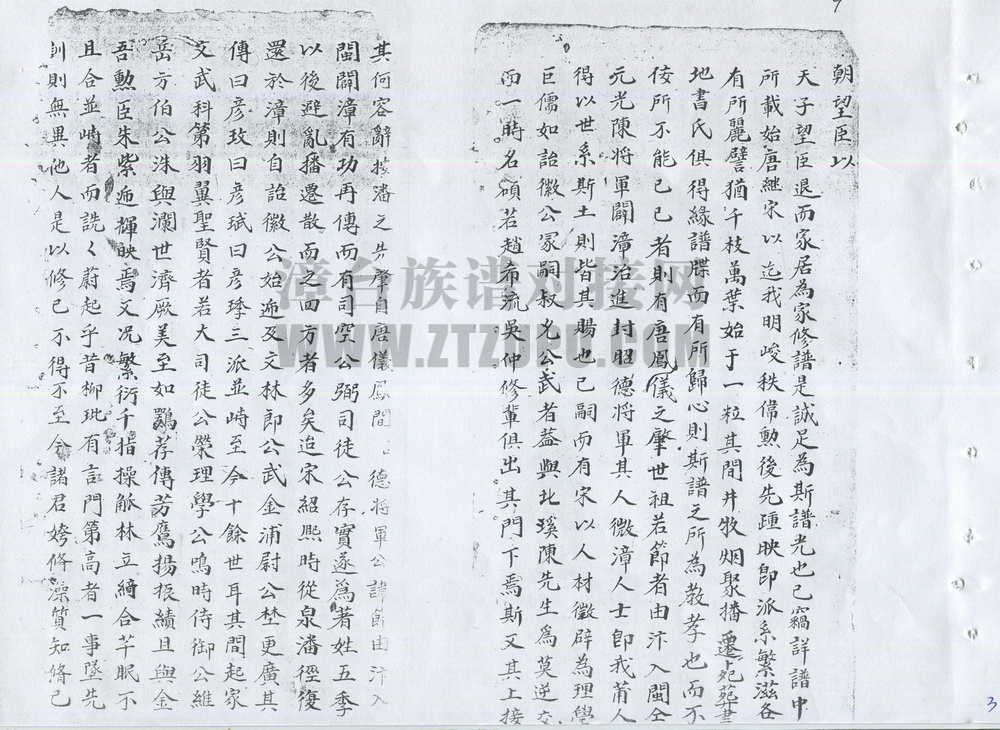 朝望臣以
天子望臣退而家居為家修譜是誠足為斯譜光也已竊詳譜中
所載始唐繼宋以迄我明峻秩偉勲後先踵映即派系繁滋各
有所麗譬猶千枝萬葉始于一粒其間井牧烟聚播遷
地書氏俱得緣譜牒而有所歸心則斯譜之所為教孝也而不
侫所不能已已者則有唐鳳儀之肇世祖若節者由汴入閩仝
元光陳將軍闢漳治進封昭德將軍其人微漳人士即我莆人
得以世系斯土則皆其賜也已嗣而有宋以人材徵辟為理學
巨儒如詒徽公冢嗣叔允公武者蓋與北溪陳先生為莫逆交
而一時名碩若趙希流吳仲修輩俱出其門下焉斯又其上接
其何容辭按潘之先肇自唐儀鳳間 德將軍公諱節由汴入
閩闢漳有功再傳而有司空公弼司徒公存實遂為著姓五季
以後避亂播遷散而之四方者多矣迨宋紹熙時從泉潘徑復
還於漳則自詒徽公始遞及文林郎公武金浦尉公埜更廣其
傳曰彦玫曰彦珷曰彦琇三派並峙至今十餘世耳其間起家
文武科第羽翼聖賢者若大司徒公榮理學公鳴時侍御公維
岳方伯公洙與瀾世濟厥美至如鶚荐傳芳鷹揚振績且與金
吾勲臣朱紫遞輝映焉又况繁衍千指操觚林立綺合芊眠不
且合並峙者而詵々蔚起乎昔柳玭有言門第高者一事墜先
訓則無異他人是以修己不得不至今諸君姱修澡質知脩己
3
漳台族谱对接网
WWW.ZTZUPU.COM